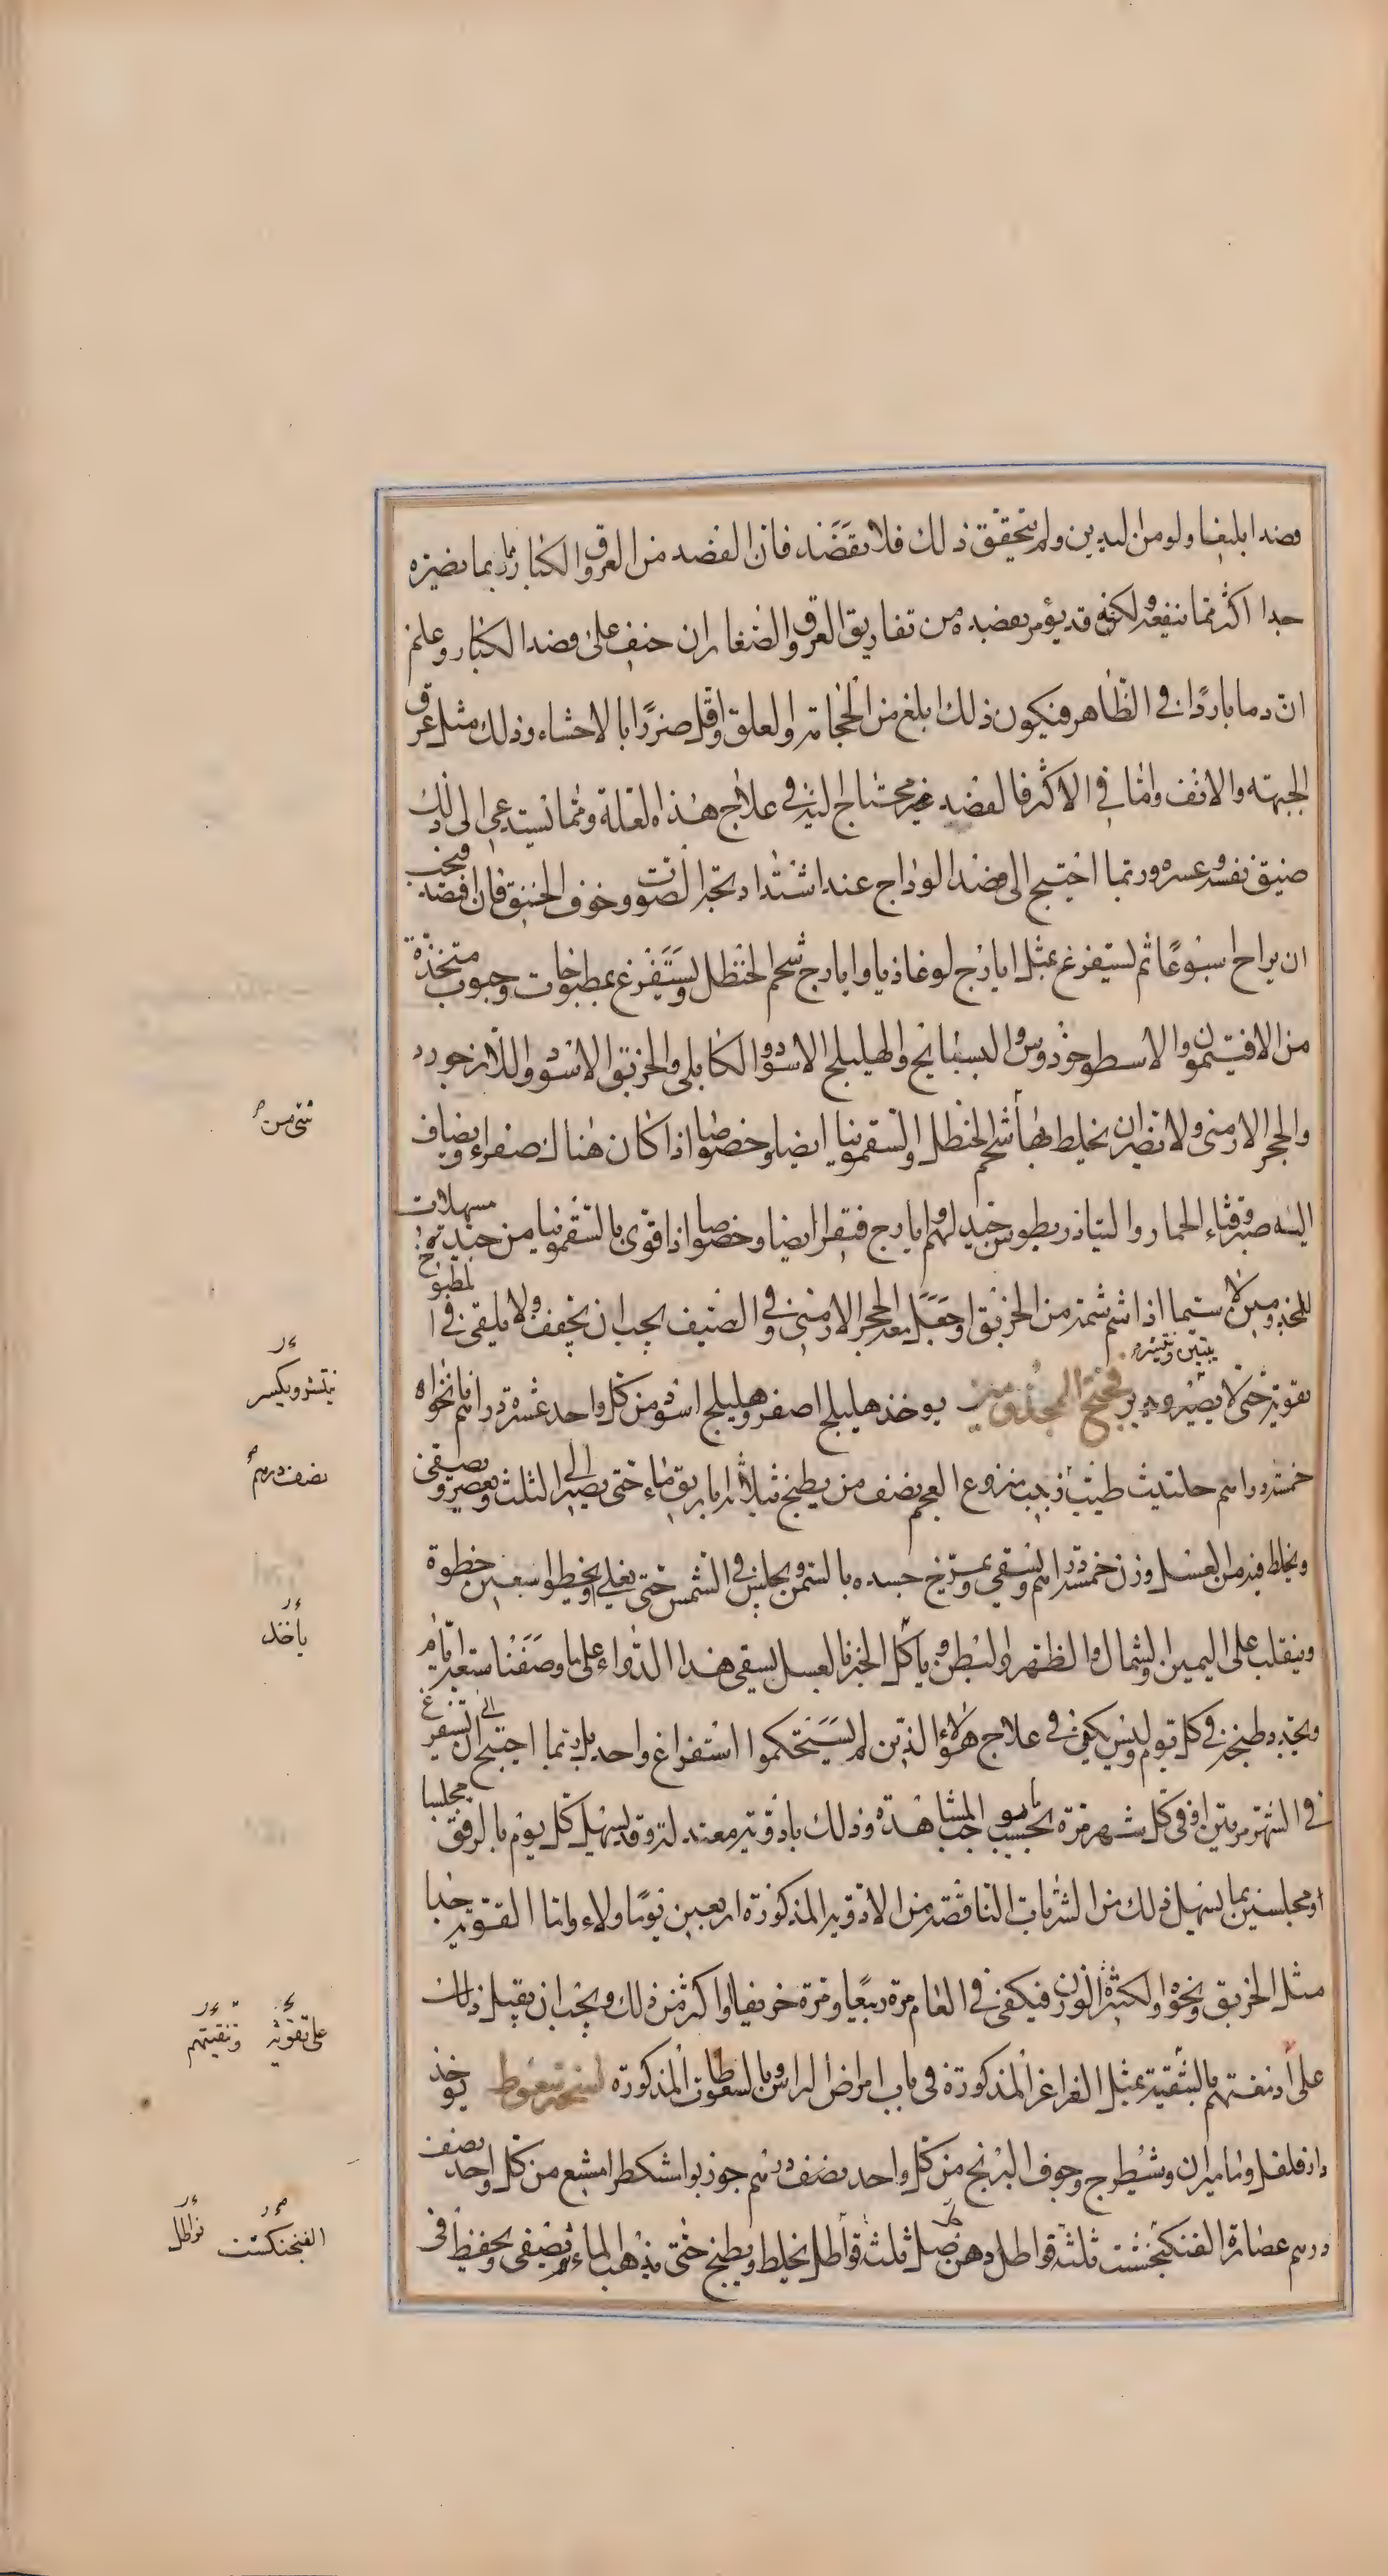 فصدا بليغا ولو من اليدين ولم يتحقق ذلك فلا يفصد فان الفصد من العروق الكبار ربما يضره
جدا اكثر مما ينفعه ولكنه قد يؤمر بفصده من تفاريق العروق الصغار ان خيف على فصد الكبار وعلم
ان دما باردا في الظاهر فيكون ذلك ابلغ من الحجامة والعلق واقل ضررا بالاحشاء وذلك مثل عرق
الجبهة والانف واما في الاكثر فالفصد غير محتاج اليه في علاج هذه العلة ومما يستدعى الى ذلك
ضيق نفسه وعسره وربما احتيج الى فصد الوداج عند اشتداد بحة الصوت وخوف الخنق فان افصد فيجب
ان يراح اسبوعا ثم يستفرغ بمثل ايارج لوغاذيا وايارج شحم الحنظل ويستفرغ بمطبوخات وحبوب متخذة
من الافتيمون والاسطوخودوس والبسفايج والهليلج الاسود والكابلى والخربق الاسود واللازورد
والحجر الارمنى ولا يضر ان يخلط بها شحم الحنظل والسقمونيا ايضا وخصوصا اذا كان هناك صفراء ويضاف
اليه صبر وقثاء الحمار والتياذريطوس جيد لهم وايارج فيقرا ايضا وخصوصا اذا قوى بالسقمونيا من جيدة مسهلات
للمجذومين لا سيما اذا شم شمة من الخربق او جعل معه الحجر الارمنى وفي الصيف يجب ان يخفف ولا يلقى في المطبوخ
يقويه حتى لا يضره ويدبر فتح المجذومين يوخذ هليلج اصفر وهليلج اسود من كل واحد عشرة دراهم نانخواه
خمسة دراهم حلتيث طيب زبيب منزوع العجم نصف من يطبخ بثلاثة اباريق ماء حتى يصير الى الثلث ويعصر ويصفى
ويخلط فيه من العسل وزن خمسة دراهم ويسقى ويمرخ جسده بالسمن ويجلس في الشمس حتى يغلى ويخطو اسبعين خطوة
وينقلب على اليمين والشمال والظهر والبطن وياكل الخبز بالعسل يسقى هذا الدواء على ما وصفنا سبعة ايام
ويجدد طبخه في كل يوم وليس يكفى في علاج هؤلاء الذين لم يستحكموا استفراغ واحد بل ربما احتيج الى ان تستفرغ
في الشهر مرتين او في كل شهر مرة بحسب ما يوجب المشاهدة وذلك بادوية معتدلة وقد يسهل كل يوم بالرفق مجلسا
او مجلسين بما يسهل ذلك من الشربات الناقصة من الادوية المذكورة اربعين يوما ولاء واما القوية جدا
مثل الخربق ونحوه والكثيرة الوزن فيكفى في العام مرة ربيعا ومرة خريفا او اكثر من ذلك ويجب ان يقبل ذلك
على ادمغتهم بالتنقية بمثل الغراغر المذكورة في باب امراض الراس وبالسعوطات المذكورة نسخة سعوط يوخذ
دار فلفل وماميران وشيطرج وجوف البرنج من كل واحد نصف درهم جوز بوا مشكطرامشيع من كل واحد نصف
درهم عصارة الفنكنجشت ثلثة قواطل دهن صل ثلثة قواطل يخلط ويطبخ حتى يذهب الماء ثم يصفى ويحفظ في
شئ من
ويكسر
نصف درهم
ياخذ
على تقوية وتنقيتهم
الفنجنكشت